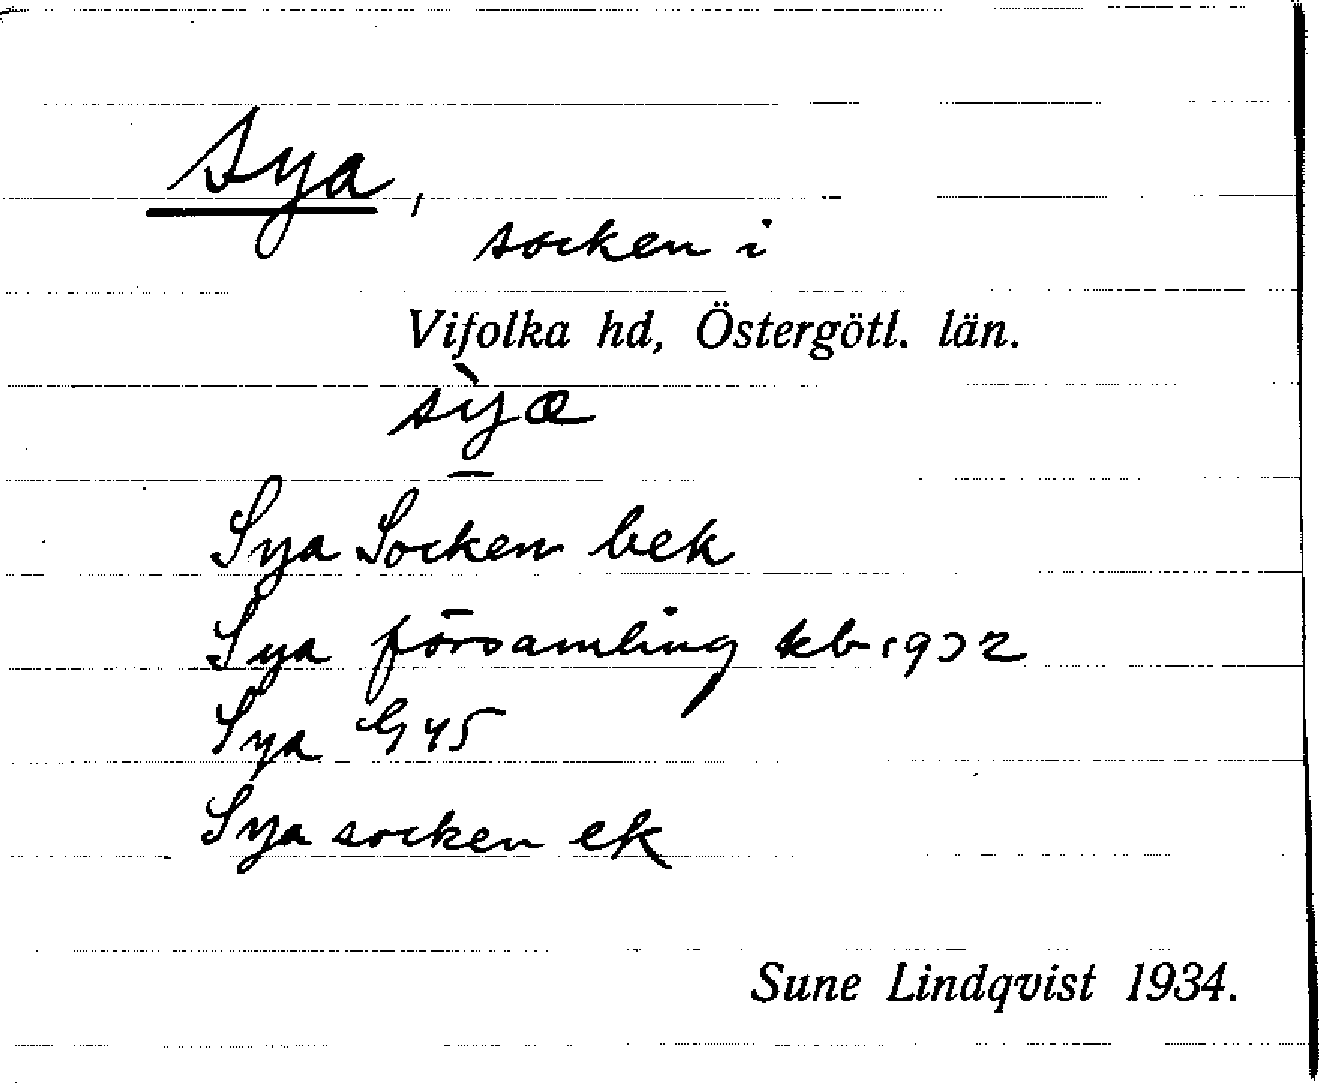 Sya,
socken i
Vifolka hd, Östergötl. län.
sỳa
Sya Socken bek
Sya församling kb 1932
Sya G 45
Sya socken ek
Sune Lindqvist 1934.